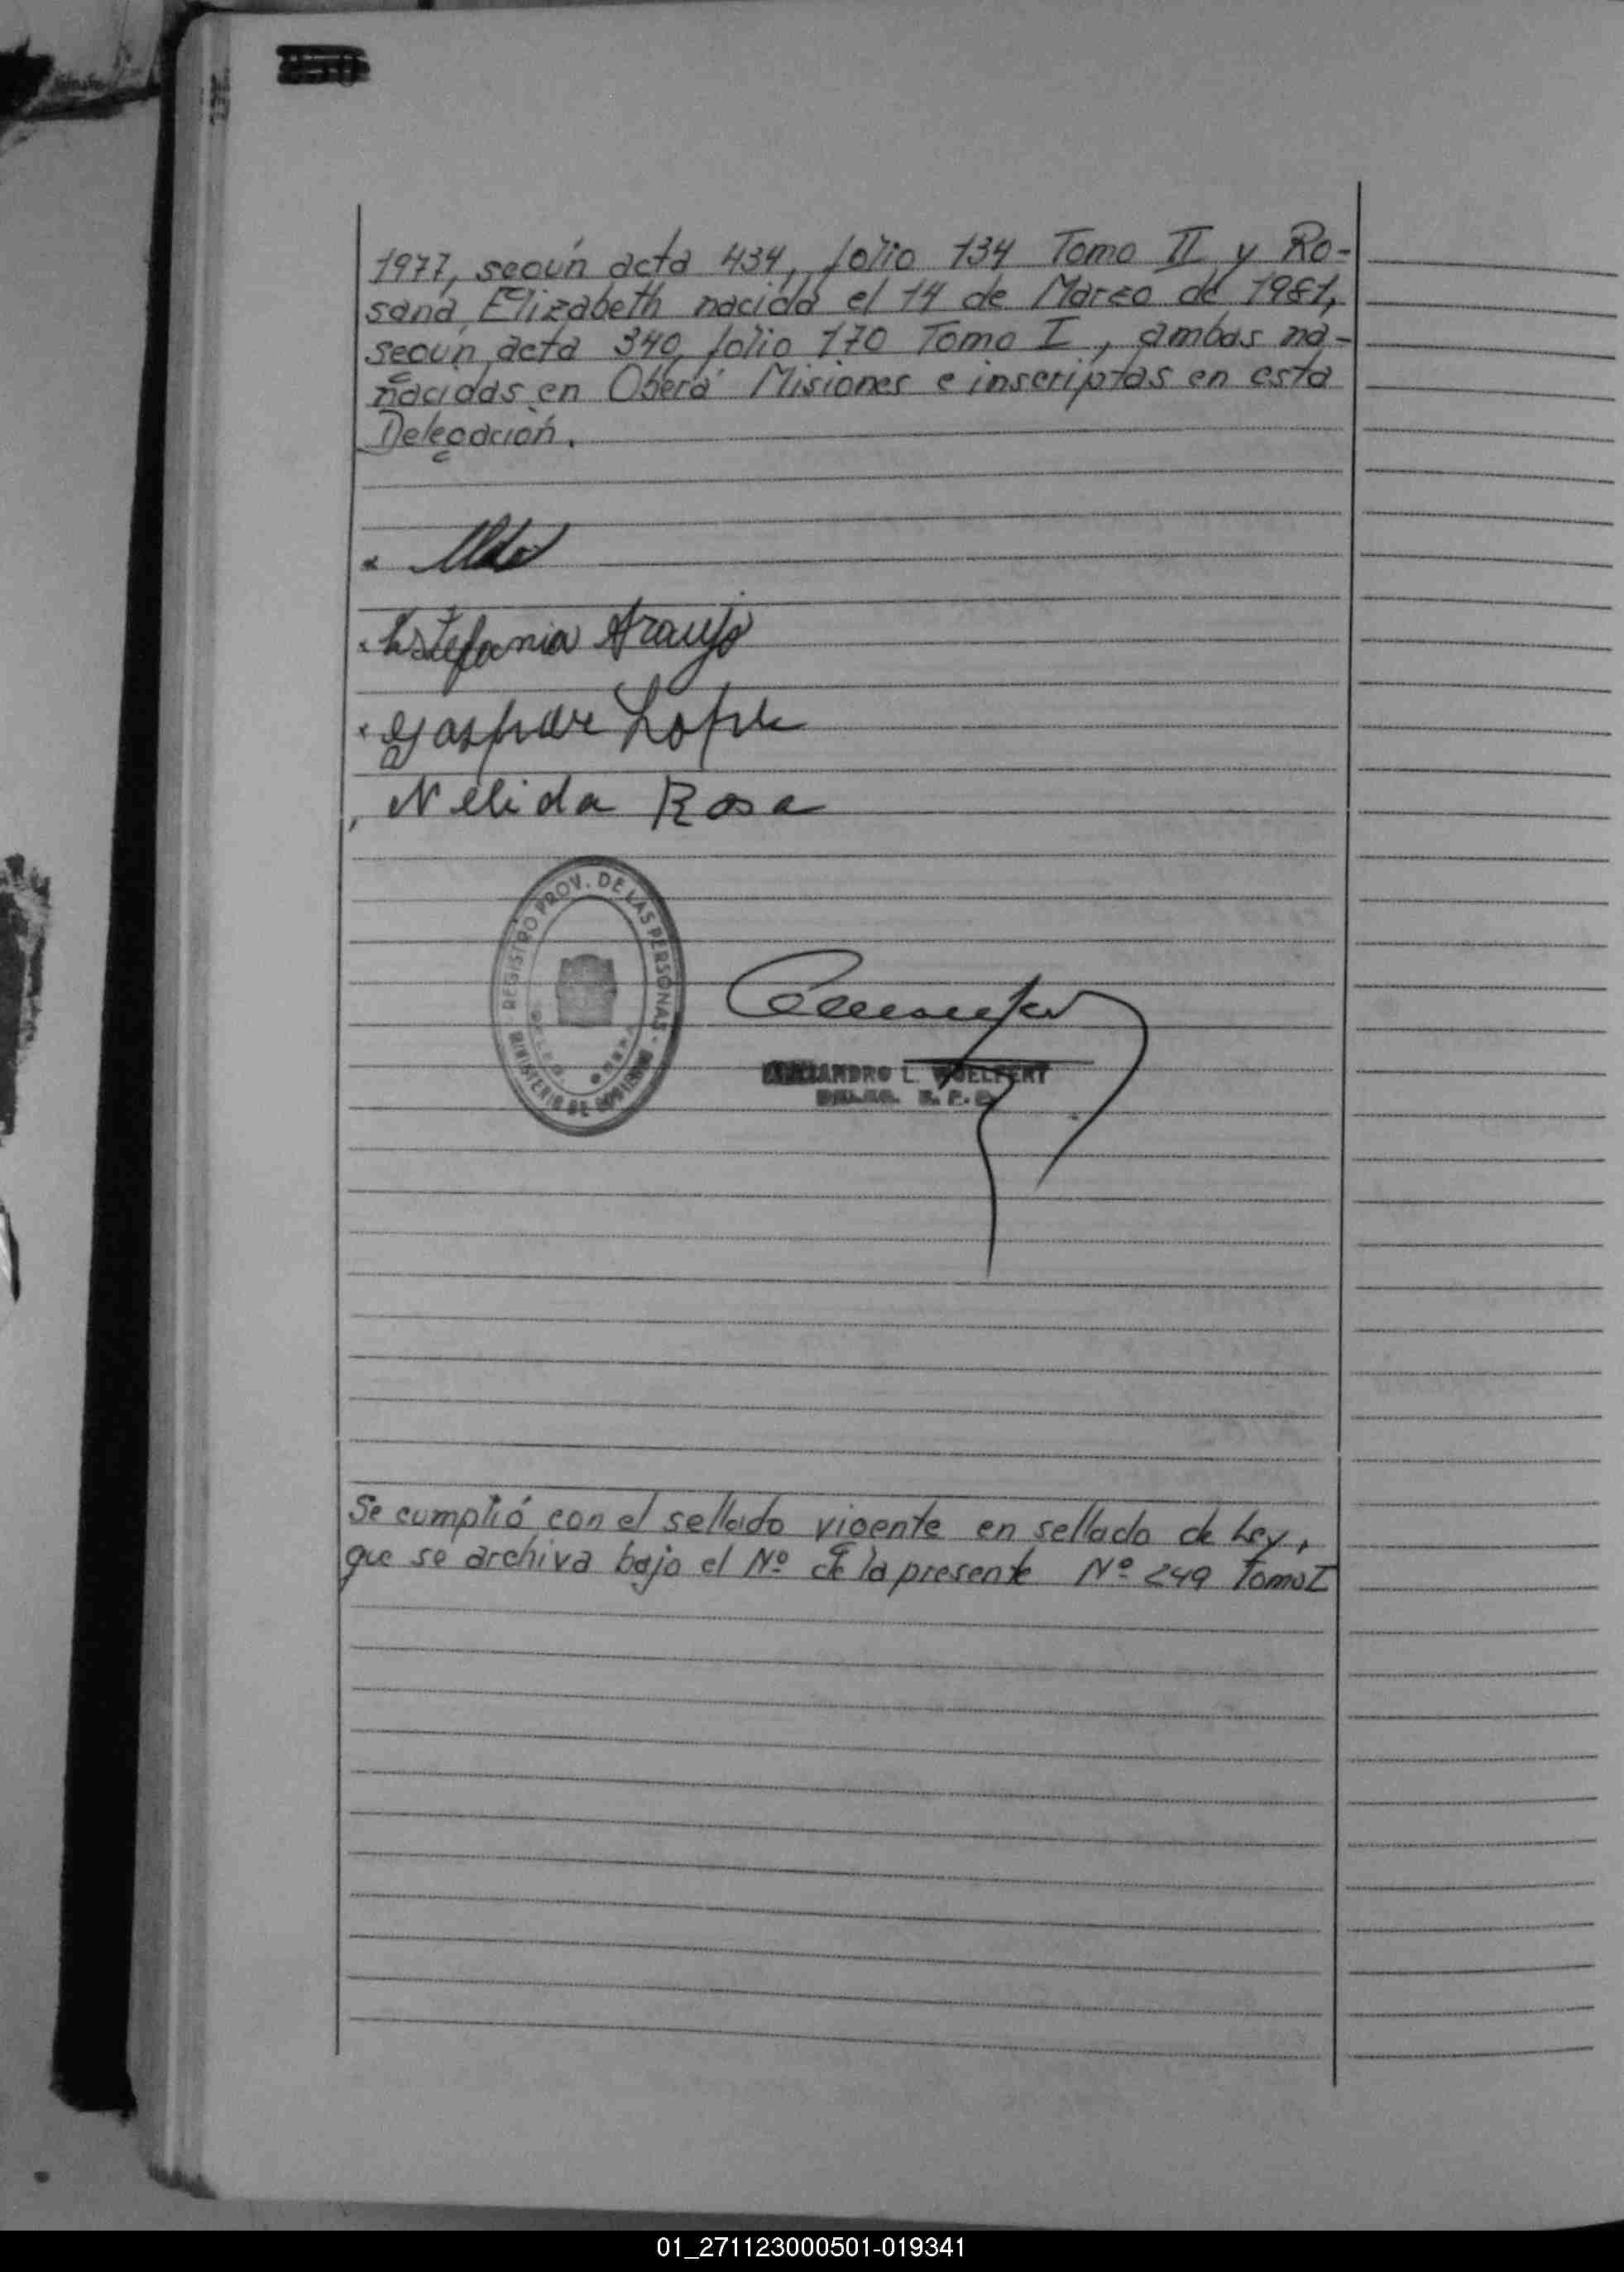 250
1977, según acta 434, folio 134 Tomo II y Ro-
sana Elizabeth nacida el 14 de Marzo de 1981,
según acta 340, folio 170 Tomo I, ambas na-
nacidas en Oberá Misiones e inscriptas en esta
Delegación.
Estefania Araujo
Gaspar Lopez
Nélida Rosa
REGISTRO PROV. DE LAS PERSONAS - MINISTERIO DE GOBIERNO
ALEJANDRO L. WOELFERT
DELEG. R. P. P.
Se cumplió con el sellado vigente en sellado de Ley,
que se archiva bajo el Nº de la presente Nº 249 Tomo I
01_271123000501-019341